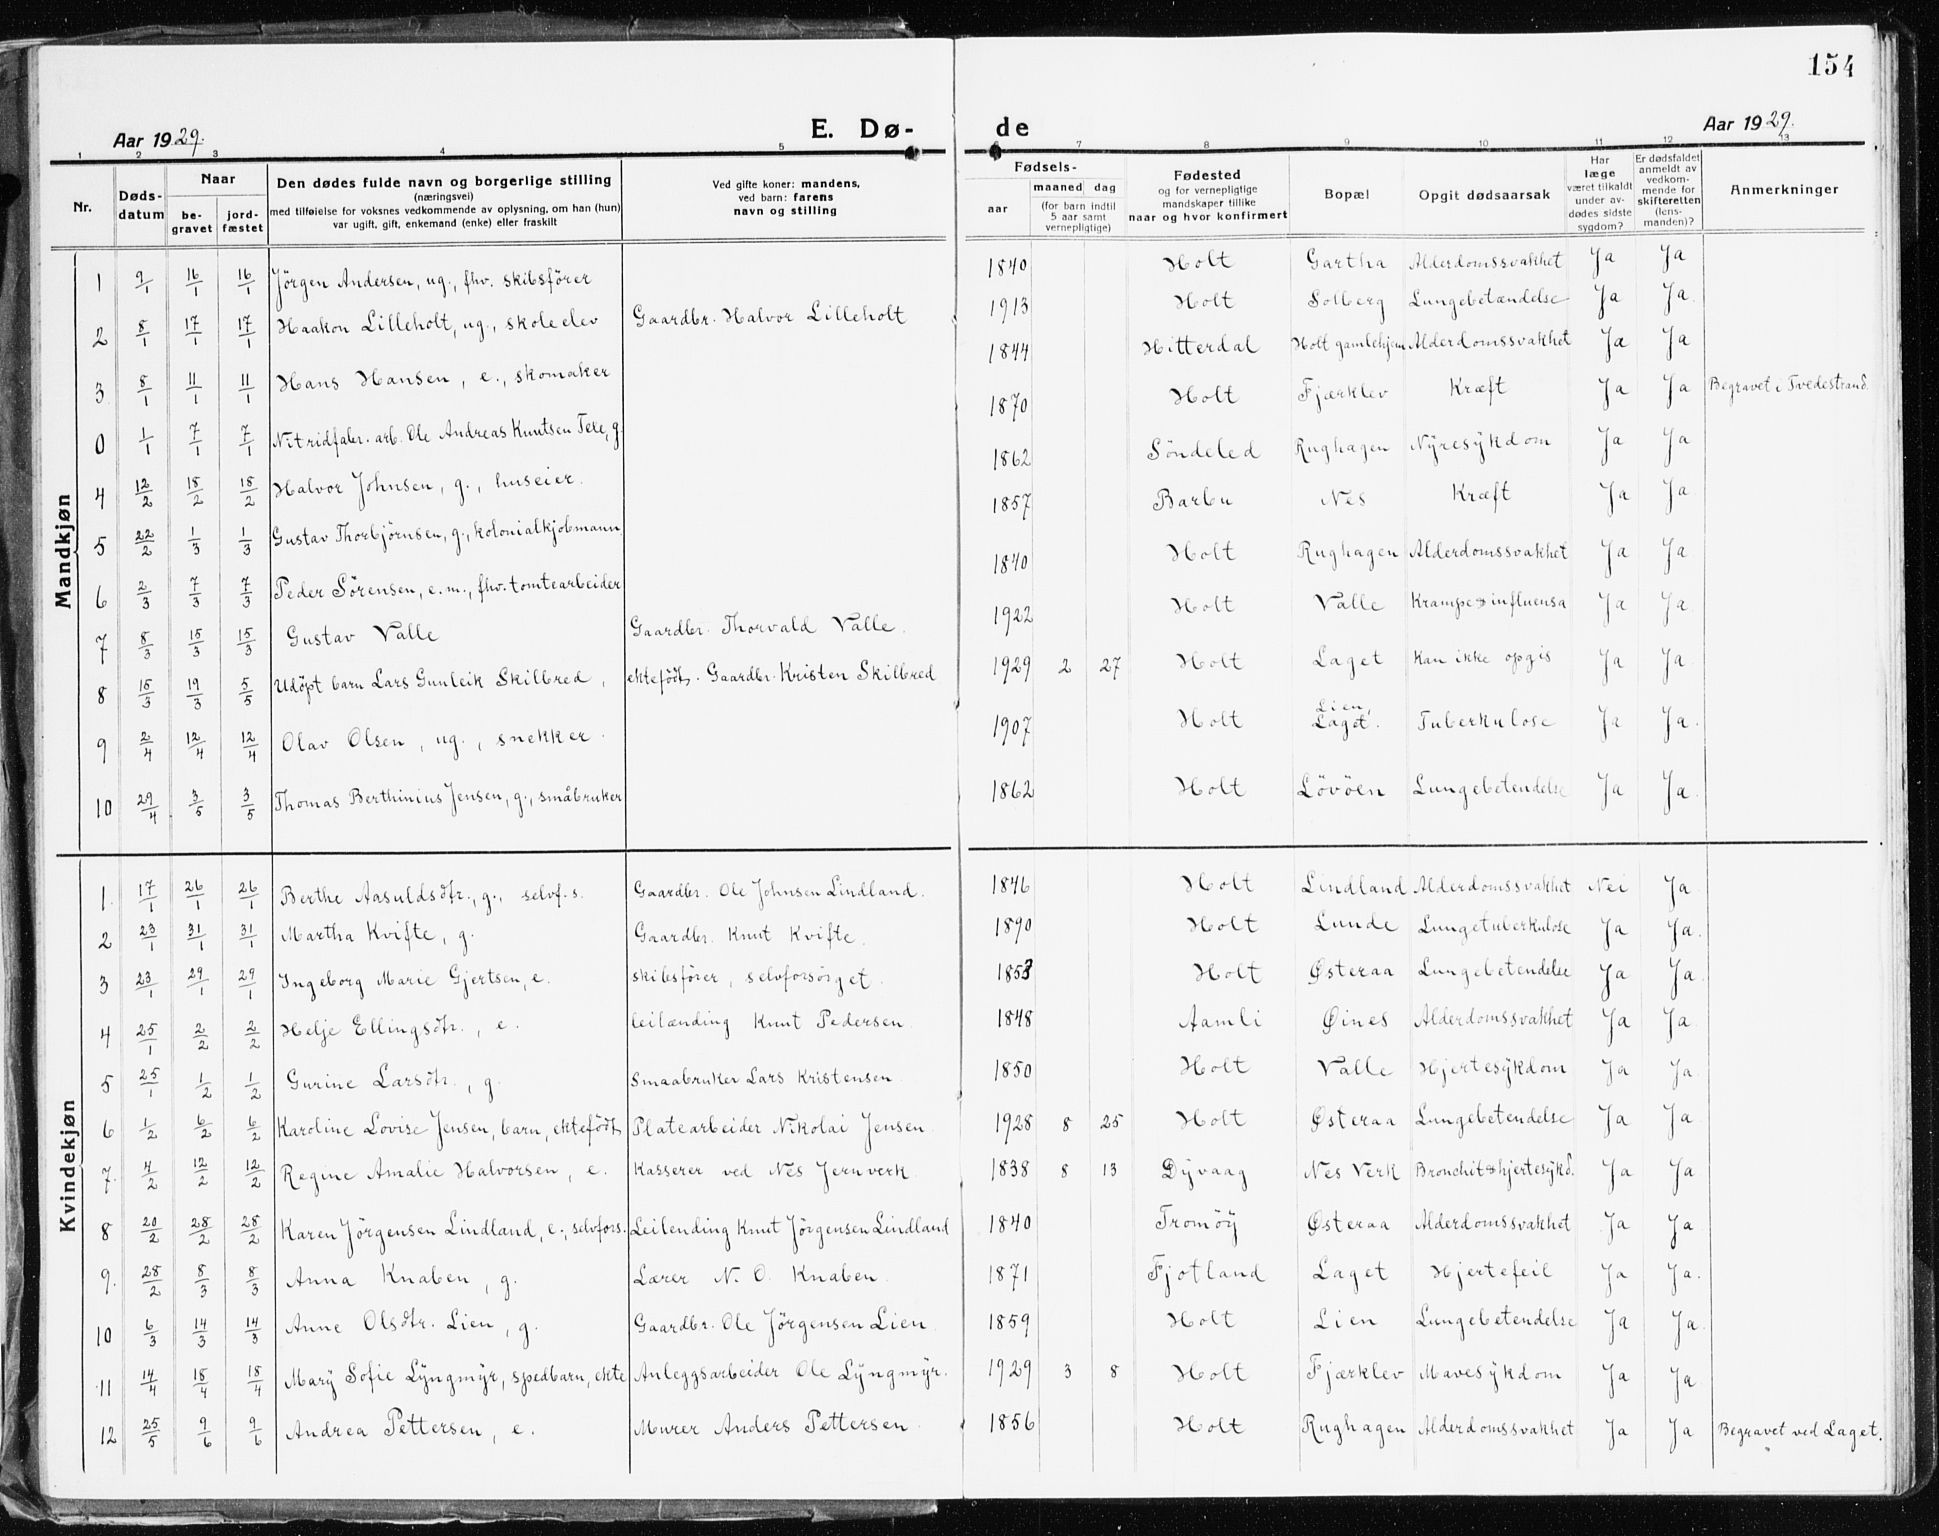 154
Aar 1929.
E. Dø- de
Aar 1929.
1 2 3 4 5 6 7 8 9 10 11 12 13
Nr.
Døds-datum
Naar
be-gravet
jord-fæstet
Den dødes fulde navn og borgerlige stilling
(næringsvei)
med tilføielse for voksnes vedkommende av oplysning, om han (hun)
var ugift, gift, enkemand (enke) eller fraskilt
Ved gifte koner: mandens,
ved barn: farens
navn og stilling
Fødsels-
aar
maaned dag
(for barn indtil
5 aar samt
vernepligtige)
Fødested
og for vernepligtige
mandskaper tillike
naar og hvor konfirmert
Bopæl
Opgit dødsaarsak
Har
læge
været tilkaldt
under av-
dødes sidste
sygdom?
Er dødsfaldet
anmeldt av
vedkom-
mende for
skifteretten
(lens-
manden)?
Anmerkninger
Mandkjøn
1 9/1 16/1 16/1 Jörgen Andersen, ug., fhv. skibsförer 1840 Holt Gartha Alderdomssvakhet Ja Ja
2 8/1 17/1 17/1 Haakon Lilleholt, ug., skoleelev Gaardbr. Halvor Lilleholt 1913 Holt Solberg Lungebetændelse Ja Ja.
3 8/1 11/1 11/1 Hans Hansen, e., skomaker 1844 Hitterdal Holt gamlehjem Alderdomssvakhet Ja Ja
0 1/1 7/1 7/1 Nitridfabr. arb. Ole Andreas Knutsen Texe, g. 1870 Holt Fjærklev Kræft Ja Ja Begravet i Tvedestrand.
4 12/2 18/2 18/2 Halvor Johnsen, g., huseier. 1862 Söndeled Rughagen Nÿresÿkdom Ja Ja
5 22/2 1/3 1/3 Gustav Thorbjörnsen, g., kolonialkjöbmann 1857 Barbu Nes Kræft Ja Ja
6 2/3 7/3 7/3 Peder Sörensen, e.m., fhv. tomtearbeider 1840 Holt Rughagen Alderdomssvakhet Ja Ja
7 8/3 15/3 15/3 Gustav Valle Gaardbr. Thorvald Valle. 1922 Holt Valle Krampe & influensa Ja Ja
8 15/3 19/3 5/5 Udöpt barn Lars Gunleik Skilbred, ektefödt. Gaardbr. Kristen Skilbred 1929 2 27 Holt Laget Kan ikke opgis Ja Ja.
9 2/4 12/4 12/4 Olav Olsen, ug., snekker. 1907 Holt Lien, Laget. Tuberkulose Ja Ja.
10 29/4 3/5 3/5 Thomas Berthinius Jensen, g., småbruker 1862 Holt Lövöen Lungebetendelse Ja Ja.
Kvindekjøn
1. 17/1 26/1 26/1 Berthe Aasuldsdtr., g., selvf.s. Gaardbr. Ole Johnsen Lindland. 1846 Holt Lindland Alderdomssvakhet Nei Ja.
2 23/1 31/1 31/1 Martha Kvifte, g. Gaardbr. Knut Kvifte. 1890 Holt Lunde Lungetuberkulose Ja Ja.
3 23/1 29/1 29/1 Ingeborg Marie Gjertsen, e. skibsförer, selvforsörget. 1853 Holt Østeraa Lungebetendelse Ja Ja.
4 25/1 2/2 2/2 Helje Ellingsdtr., e. leilænding Knut Pedersen. 1848 Aamli Øines Alderdomssvakhet Ja Ja.
5 25/1 1/2 1/2 Gurine Larsdtr., g. Smaabruker Lars Kristensen 1850 Holt Valle Hjertesÿkdom Ja Ja.
6 1/2 6/2 6/2 Karoline Lovise Jensen, barn, ektefödt Platearbeider Nikolai Jensen. 1928 8 25 Holt Østeraa Lungebetendelse Ja Ja.
7. 4/2 12/2 12/2 Regine Amalie Halvorsen, e. Kasserer ved Nes Jernverk. 1838 8 13 Dÿvaag Nes Verk Bronchit & hjertesÿkd. Ja Ja
8 20/2 28/2 28/2 Karen Jörgensen Lindland, e., selvfors. Leilending Knut Jörgensen Lindland 1840 Tromöÿ Østeraa Alderdomssvakhet Ja Ja
9. 28/2 8/3 8/3 Anna Knaben, g. Lærer N. O. Knaben. 1871 Fjotland Laget Hjertefeil Ja Ja.
10 6/3 14/3 14/3 Anne Olsdtr. Lien, g. Gaardbr. Ole Jörgensen Lien. 1859 Holt Lien Lungebetendelse Ja Ja.
11 14/4 18/4 18/4 Marÿ Sofie Lÿngmÿr, spedbarn, ekte Anleggsarbeider Ole Lÿngmÿr. 1929 3 8 Holt Fjærklev Mavesÿkdom Ja Ja
12 25/5 9/6 9/6 Andrea Pettersen, e. Murer Anders Pettersen. 1856 Holt Rughagen Alderdomssvakhet Ja Ja Begravet ved Laget.